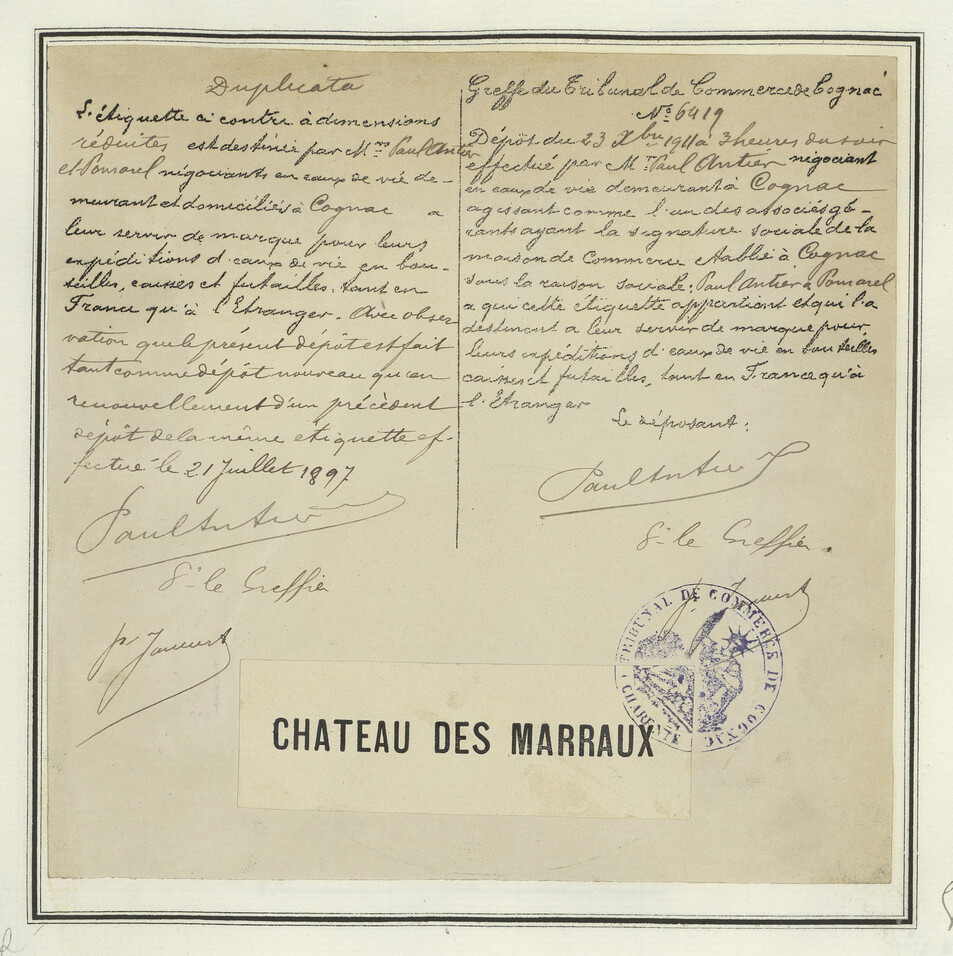 Duplicata
L'étiquette ci contre à dimensions
réduites est destinée par Mrs Paul Antier
et Pomarel négociants en eaux de vie de-
meurant et domiciliés à Cognac a
leur servir de marque pour leurs
expéditions d'eaux de vie en bou-
teilles, caisses et futailles, tant en
France qu'à l'Etranger. Avec obser
vation que le présent dépôt est fait
tant comme dépôt nouveau qu'en
renouvellement d'un précèdent
dépôt de la même étiquette ef-
fectué le 21 Juillet 1897
Paul Antier
le Greffier
Greffe du Tribunal de Commerce de Cognac
No 6419
Dépôt du 23 Xbre 1911 à 3 heures du soir
effectué par Mr Paul Antier négociant
en eaux de vie demeurant à Cognac
agissant comme l'un des associés gé-
rants ayant la signature sociale de la
maison de Commerce établie à Cognac
sous la raison sociale: Paul Antier & Pomarel
a qui cette étiquette appartient et qui l'a
destinent a leur servir de marque pour
leurs expéditions d'eaux de vie en bouteilles
caisses et futailles, tant en France qu'à
l'Etranger
Le déposant:
Paul Antier
le Greffier.
TRIBUNAL DE COMMERCE DE COGNAC
CHARENTE
CHATEAU DES MARRAUX